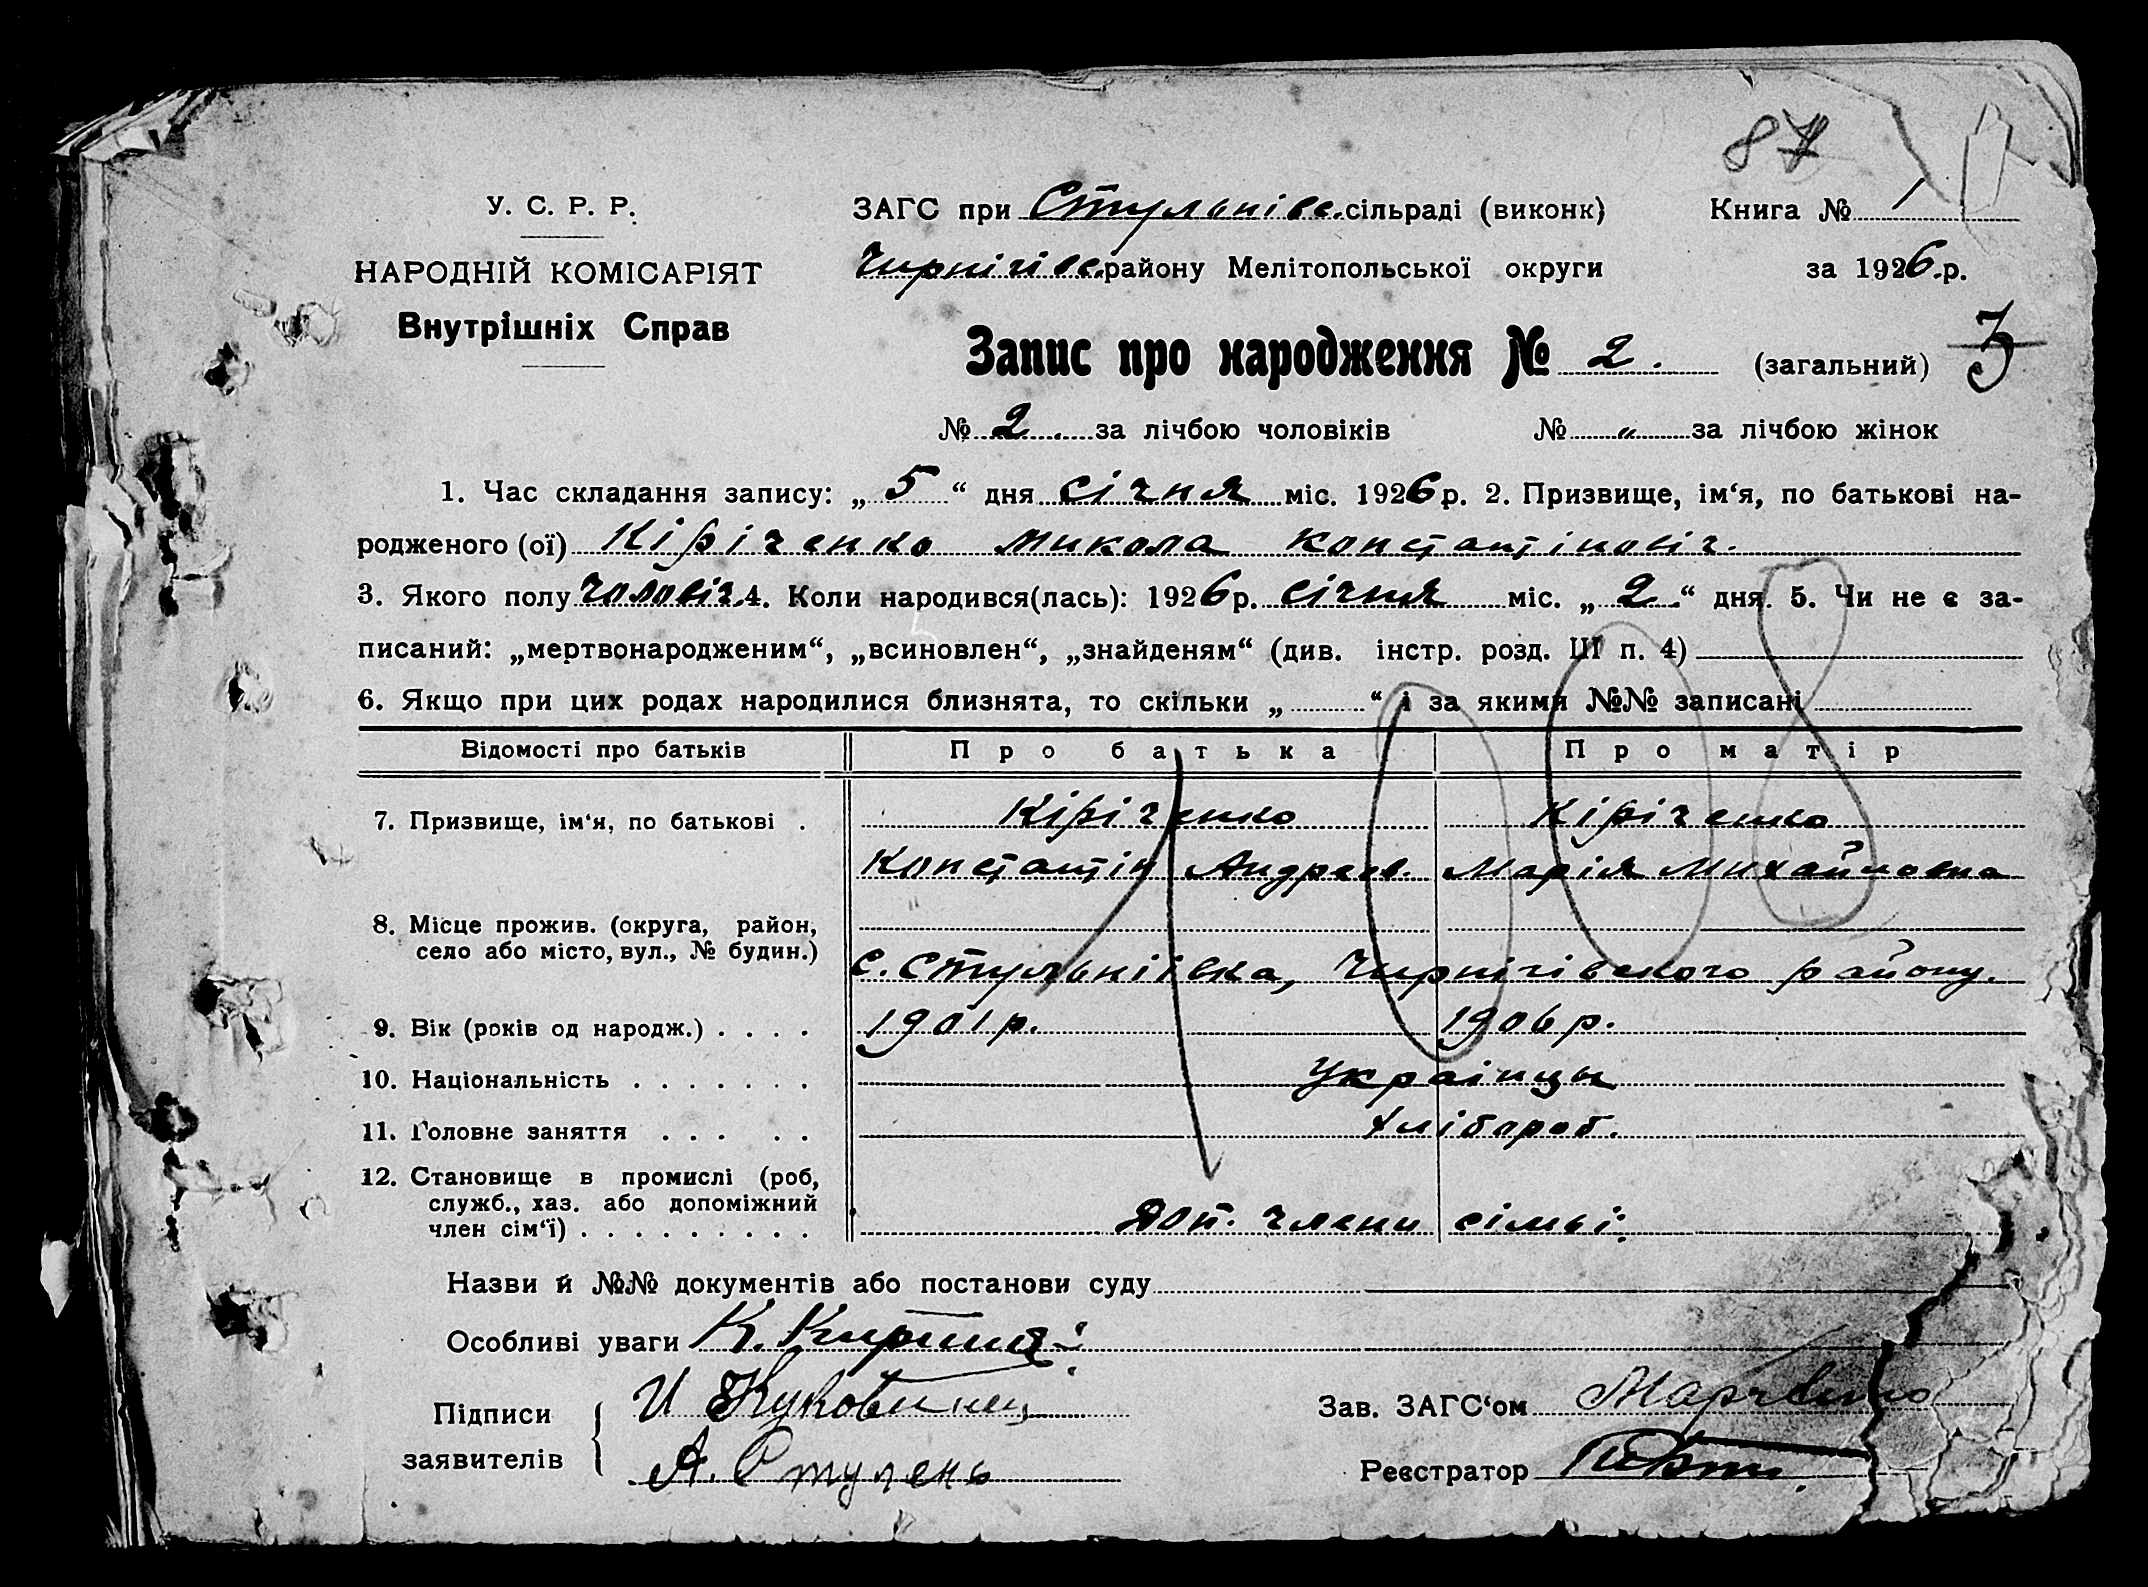 87
У. С. Р. Р.
НАРОДНІЙ КОМІСАРІЯТ
Внутрішніх Справ
ЗАГС при Стульнівс. сільраді (виконк) Книга № 1
Чирнігівс. району Мелітопольської округи за 1926 .р.
Запис про народження № 2. (загальний) 3
№ 2 за лічбою чоловіків № „ за лічбою жінок
1. Час складання запису: „ 5 “ дня січня міс. 1926 р. 2. Призвище, ім‘я, по батькові на-
родженого (ої) Кірічєнко Микола Константіновіч.
3. Якого полу чоловіч. 4. Коли народився(лась): 1926 р. січня міс. „ 2 “ дня. 5. Чи не є за-
писаний: „мертвонародженим“, „всиновлен“, „знайденям“ (див. інстр. розд. III п. 4)
6. Якщо при цих родах народилися близнята, то скільки „ “ і за якими №№ записані
Відомості про батьків Про батька Про матір
7. Призвище, ім‘я, по батькові . Кірічєнко Кірічєнко
Константін Андреев. Марія Михайловна
8. Місце прожив. (округа, район,
село або місто, вул., № будин.) с. Стульніївка, Чирнігівского району.
9. Вік (років од народж.) . . . . 1901 р. 1906 р.
10. Національність . . . . . . . Українцы
11. Головне заняття . . . . . Хлібороб.
12. Становище в промислі (роб,
служб., хаз. або допоміжний
член сім‘ї) . . . . . . . . . Доп. члени сімьі.
Назви й №№ документів або постанови суду
Особливі уваги К.
Підписи И
заявителів А. Ступень
Зав. ЗАГС‘ом
Реєстратор
1008